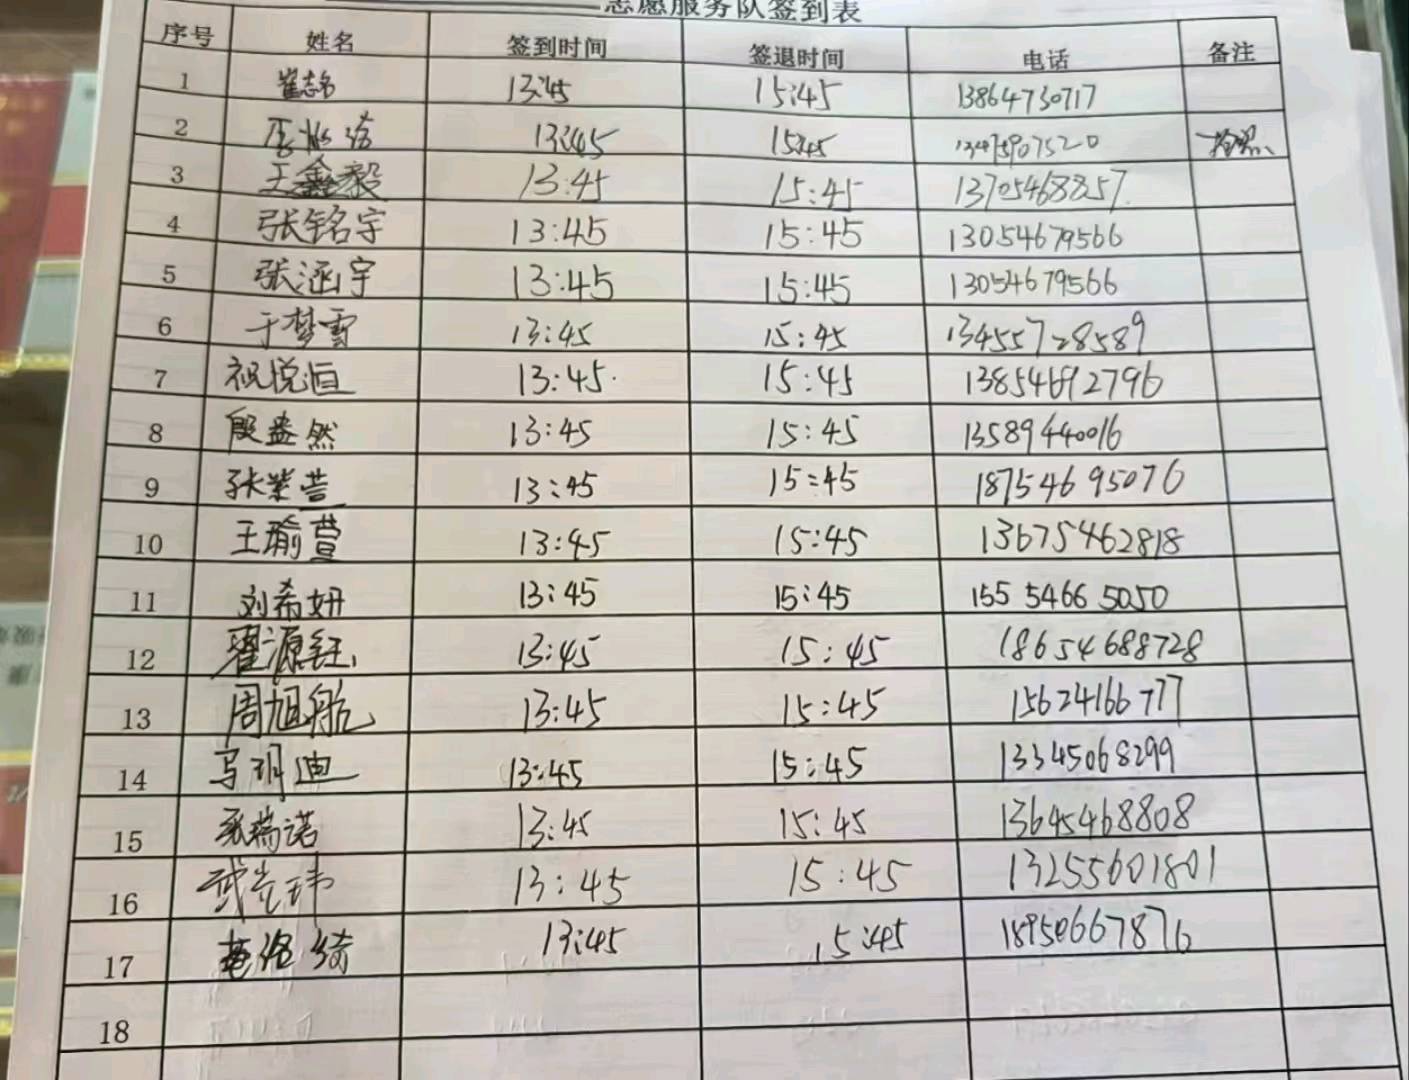 志愿服务队签到表
序号 姓名 签到时间 签退时间 电话 备注
1 崔志名 13:45 15:45 13864730717
2 13:45 15:45
3 王鑫毅 13:45 15:45 13705468857
4 张铭宇 13:45 15:45 13054679566
5 张涵宇 13:45 15:45 13054679566
6 于梦雪 13:45 15:45 13455728589
7 祝悦恒 13:45 15:45 13854692796
8 殷益然 13:45 15:45 13589440016
9 张紫萱 13:45 15:45 18754695076
10 王瑜萱 13:45 15:45 13675462818
11 刘希妍 13:45 15:45 155 5466 5050
12 翟源钰 13:45 15:45 18654688728
13 周旭航 13:45 15:45 15624166777
14 马玥迪 13:45 15:45 13345068299
15 张瑞诺 13:45 15:45 13645468808
16 13:45 15:45 13255601801
17 13:45 15:45 18950667876
18